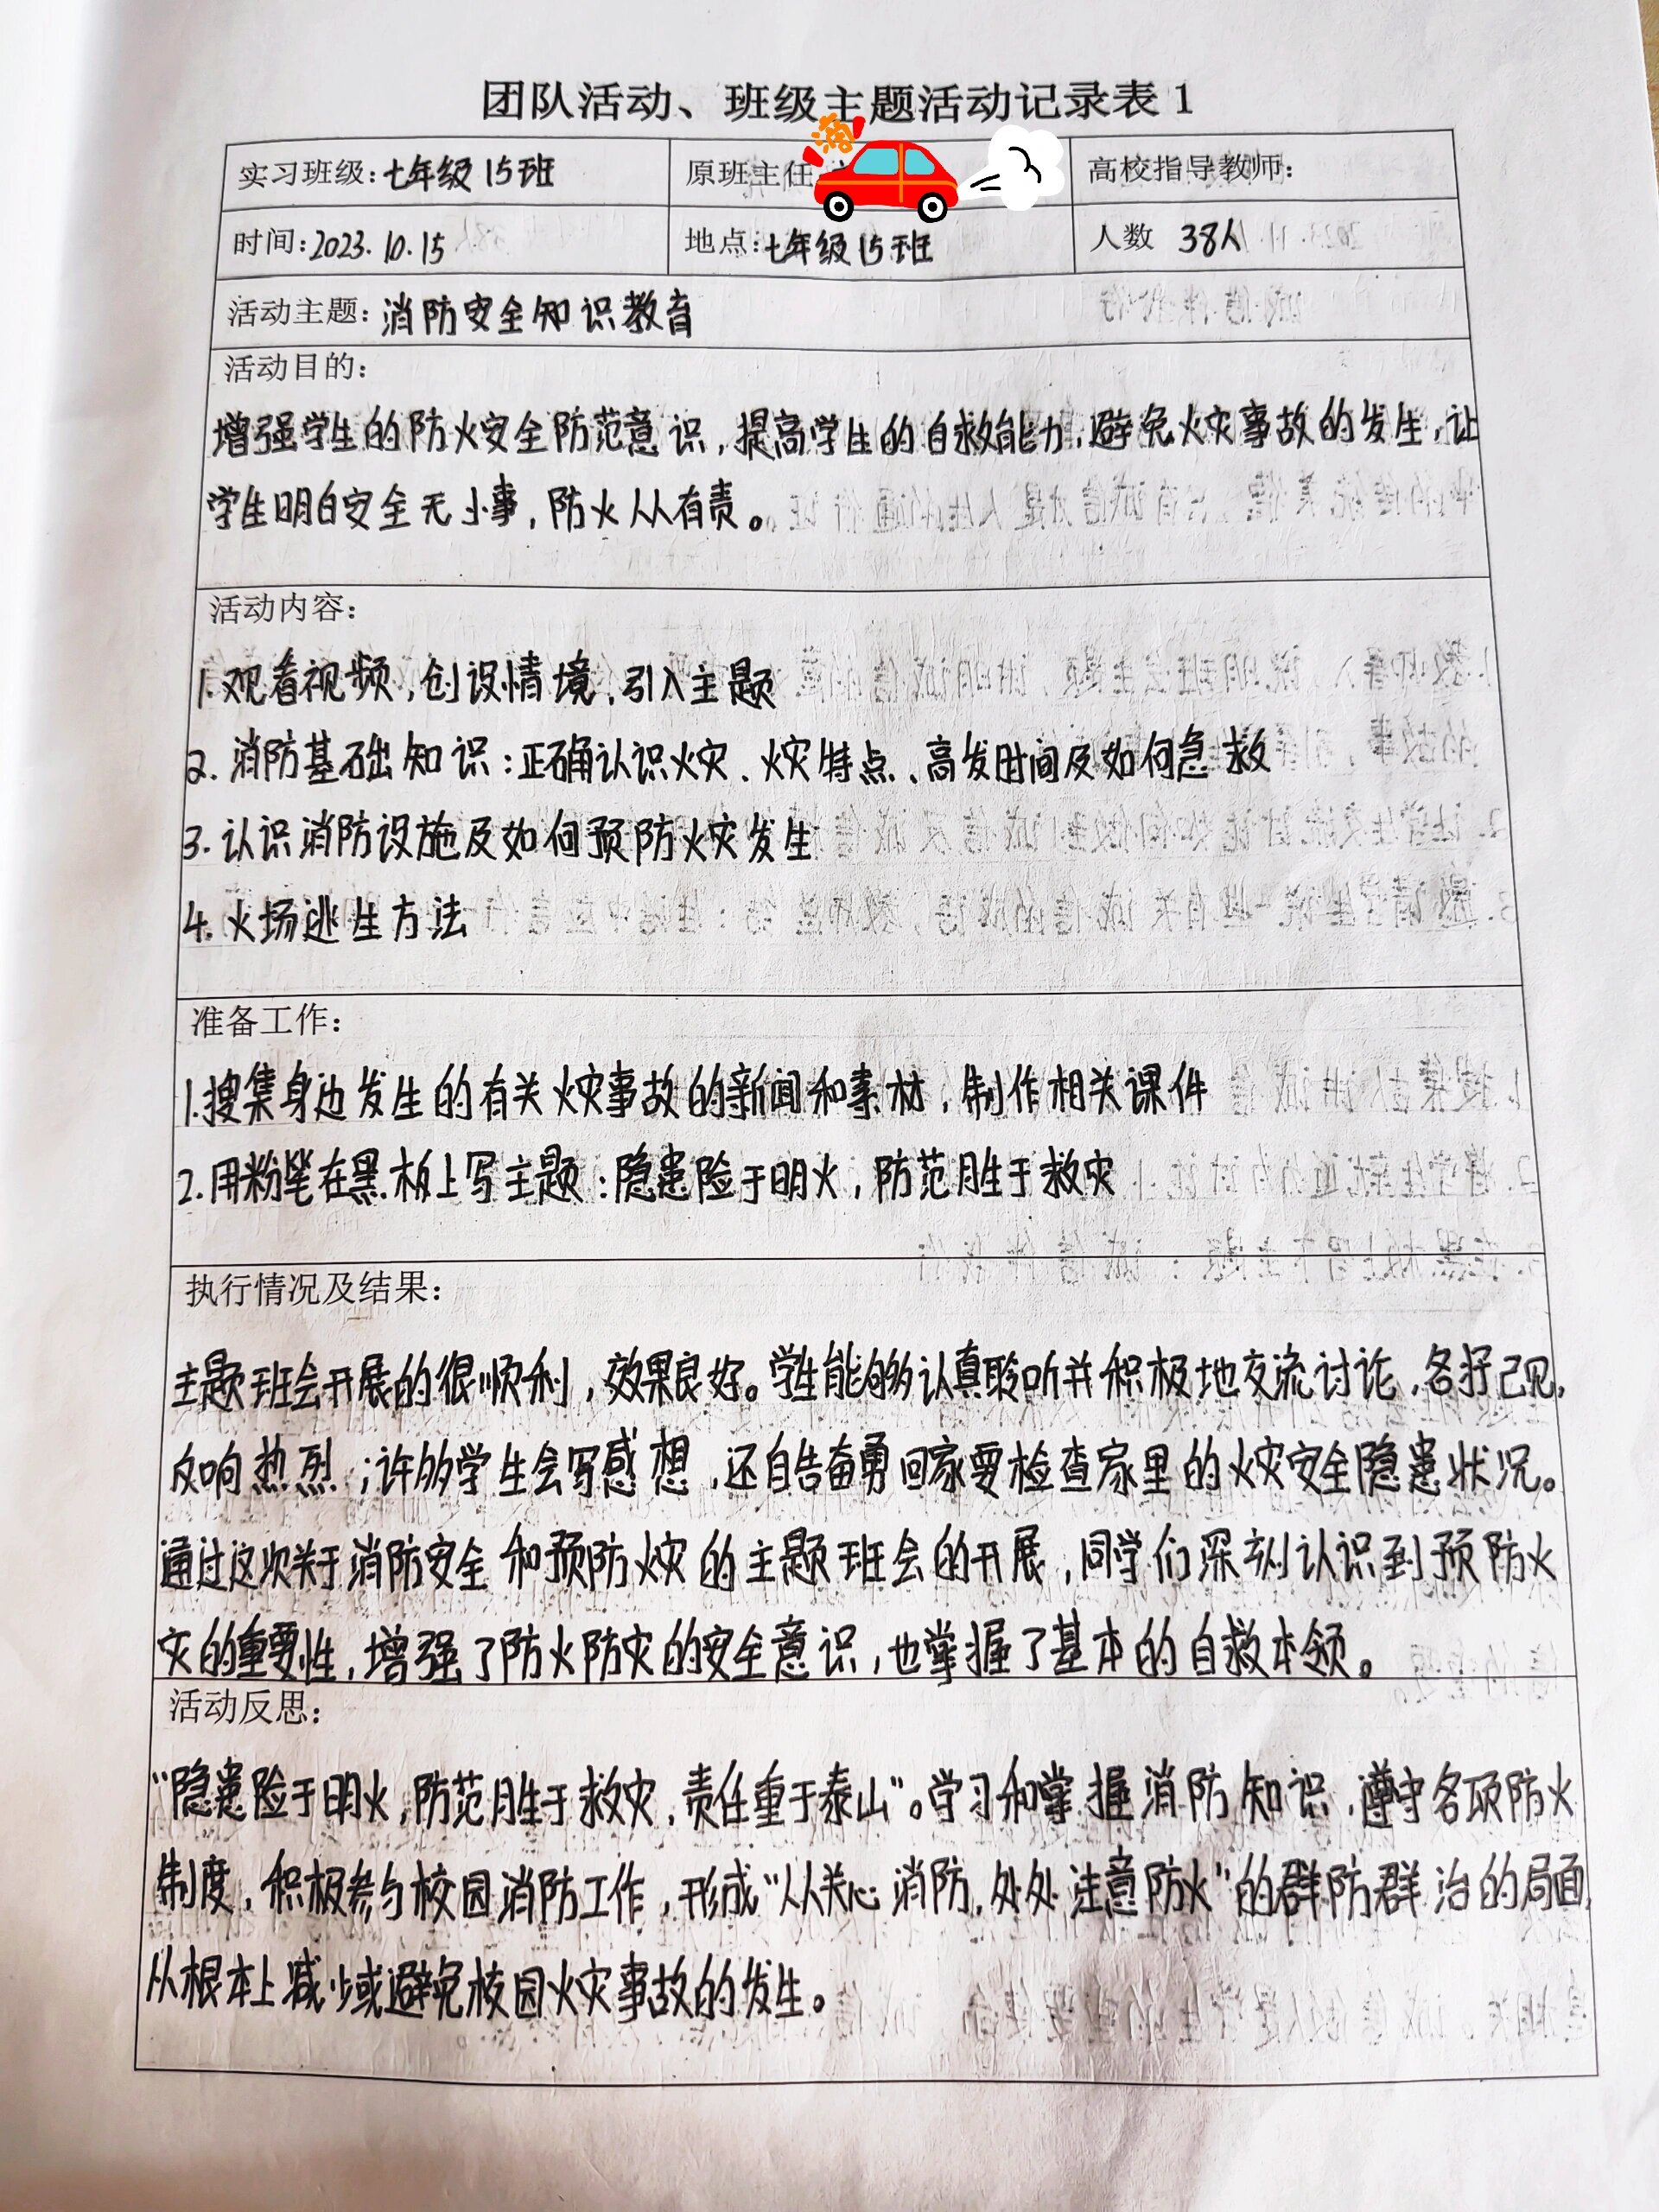 团队活动、班级主题活动记录表 1
实习班级:七年级15班 原班主任: 高校指导教师:
时间:2023.10.15 地点:七年级15班 人数 38人
活动主题:消防安全知识教育
活动目的:
增强学生的防火安全防范意识,提高学生的自救能力,避免火灾事故的发生,让
学生明白安全无小事,防火人人有责。
活动内容:
1.观看视频,创设情境,引入主题
2.消防基础知识:正确认识火灾、火灾特点、高发时间及如何急救
3.认识消防设施及如何预防火灾发生
4.火场逃生方法
准备工作:
1.搜集身边发生的有关火灾事故的新闻和素材,制作相关课件
2.用粉笔在黑板上写主题:隐患险于明火,防范胜于救灾
执行情况及结果:
主题班会开展的很顺利,效果良好。学生能够认真聆听并积极地交流讨论,各抒己见,
反响热烈;许多学生会写感想,还自告奋勇回家要检查家里的火灾安全隐患状况。
通过这次关于消防安全和预防火灾的主题班会的开展,同学们深刻认识到预防火
灾的重要性,增强了防火防灾的安全意识,也掌握了基本的自救本领。
活动反思:
“隐患险于明火,防范胜于救灾,责任重于泰山”。学习和掌握消防知识,遵守各项防火
制度,积极参与校园消防工作,形成“人人关心消防,处处注意防火”的群防群治的局面,
从根本上减少或避免校园火灾事故的发生。